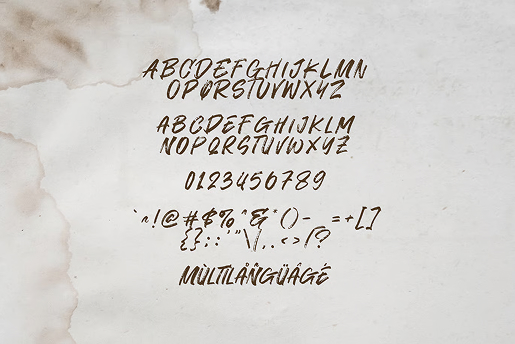 ABCDEFGHIJKLMN
OPQRSTUVWXYZ
ABCDEFGHIJKLM
NOPQRSTUVWXYZ
0123456789
`~!@#$%^&*()-_=+[]
{};:'"\|,.<>/?
MÙLTILÅÑGÜÂGÉ